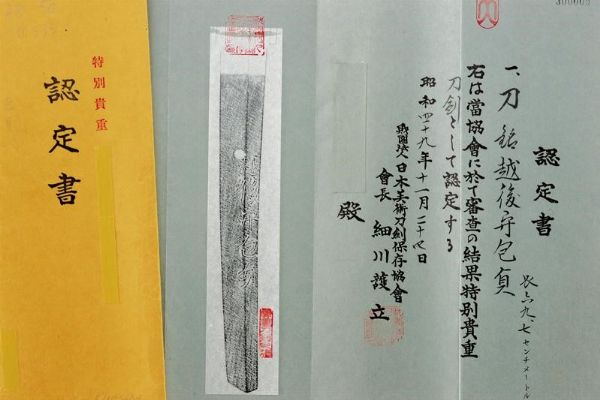 特別貴重
認定書
認定書
一、刀 銘越後守包貞
長六九、七センチメートル
右は當協會に於て審査の結果特別貴重
刀剣として認定する
昭和四十九年十一月二十四日
財團法人日本美術刀剣保存協會
會長 細川護立
殿